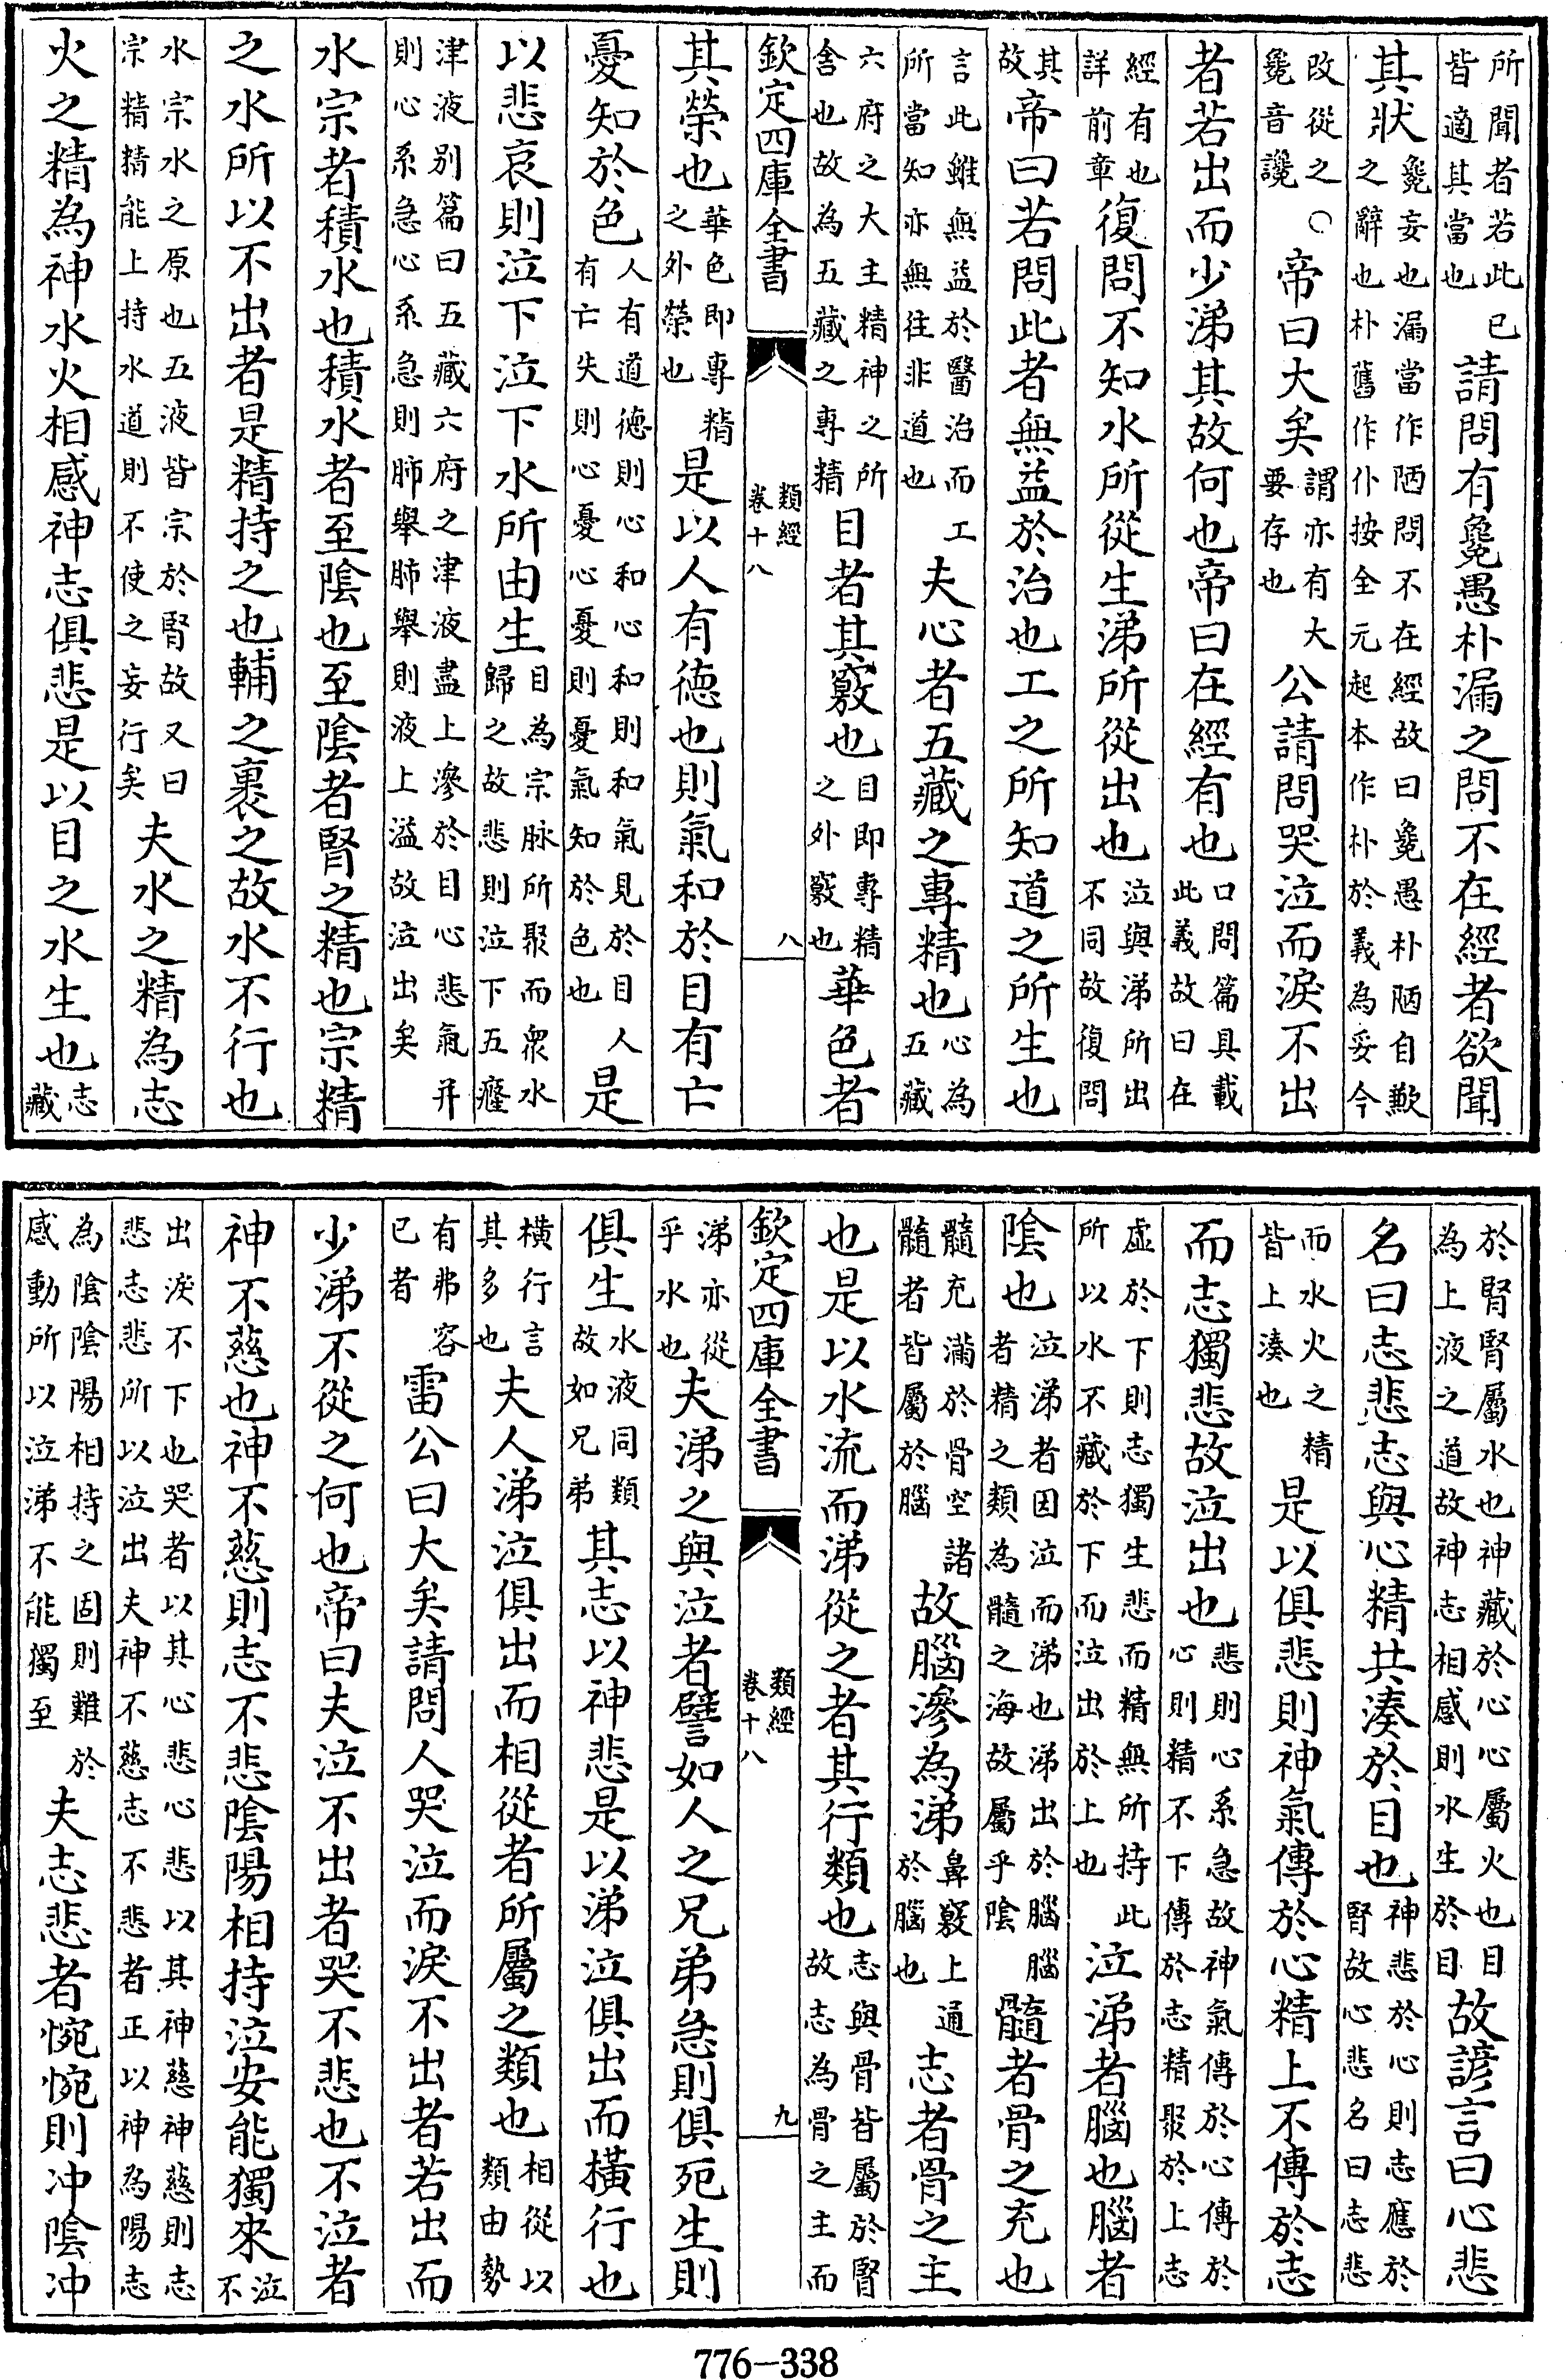 所聞者若此已皆適其當也請問有毚愚朴漏之問不在經者欲聞
其狀毚妄也漏當作陋問不在經故曰毚愚朴陋自歉之辭也朴舊作仆按全元起本作朴於義為妥今
改從之○毚音讒帝曰大矣謂亦有大要存也公請問哭泣而淚不出
者若出而少涕其故何也帝曰在經有也口問篇具載此義故曰在
經有也詳前章復問不知水所從生涕所從出也泣與涕所出不同故復問
其故帝曰若問此者無益於治也工之所知道之所生也
言此雖無益於醫治而工所當知亦無往非道也夫心者五藏之專精也心為五藏
六府之大主精神之所舍也故為五藏之專精目者其竅也目即專精之外竅也華色者
欽定四庫全書 類經卷十八 八
其榮也華色即專精之外榮也是以人有德也則氣和於目有亡
憂知於色人有道德則心和心和則和氣見於目人有亡失則心憂心憂則憂氣知於色也是
以悲哀則泣下泣下水所由生目為宗脉所聚而衆水歸之故悲則泣下五癃
津液别篇曰五藏六府之津液盡上滲於目心悲氣并則心系急心系急則肺舉肺舉則液上溢故泣出矣
水宗者積水也積水者至陰也至陰者腎之精也宗精
之水所以不出者是精持之也輔之裹之故水不行也
水宗水之原也五液皆宗於腎故又曰宗精精能上持水道則不使之妄行矣夫水之精為志
火之精為神水火相感神志俱悲是以目之水生也志藏
於腎腎屬水也神藏於心心屬火也目為上液之道故神志相感則水生於目故諺言曰心悲
名曰志悲志與心精共湊於目也神悲於心則志應於腎故心悲名曰志悲
而水火之精皆上湊也是以俱悲則神氣傳於心精上不傳於志
而志獨悲故泣出也悲則心系急故神氣傳於心傳於心則精不下傳於志精聚於上志
虛於下則志獨生悲而精無所持此所以水不藏於下而泣出於上也泣涕者腦也腦者
陰也泣涕者因泣而涕也涕出於腦腦者精之類為髓之海故屬乎陰髓者骨之充也
髓充滿於骨空諸髓者皆屬於腦故腦滲為涕鼻竅上通於腦也志者骨之主
也是以水流而涕從之者其行類也志與骨皆屬於腎故志為骨之主而
欽定四庫全書 類經卷十八 九
涕亦從乎水也夫涕之與泣者譬如人之兄弟急則俱死生則
俱生水液同類故如兄弟其志以神悲是以涕泣俱出而橫行也
橫行言其多也夫人涕泣俱出而相從者所屬之類也相從以類由勢
有弗容已者雷公曰大矣請問人哭泣而淚不出者若出而
少涕不從之何也帝曰夫泣不出者哭不悲也不泣者
神不慈也神不慈則志不悲陰陽相持泣安能獨來泣不
出淚不下也哭者以其心悲心悲以其神慈神慈則志悲志悲所以泣出夫神不慈志不悲者正以神為陽志
為陰陰陽相持之固則難於感動所以泣涕不能獨至夫志悲者惋惋則冲陰冲
776-338